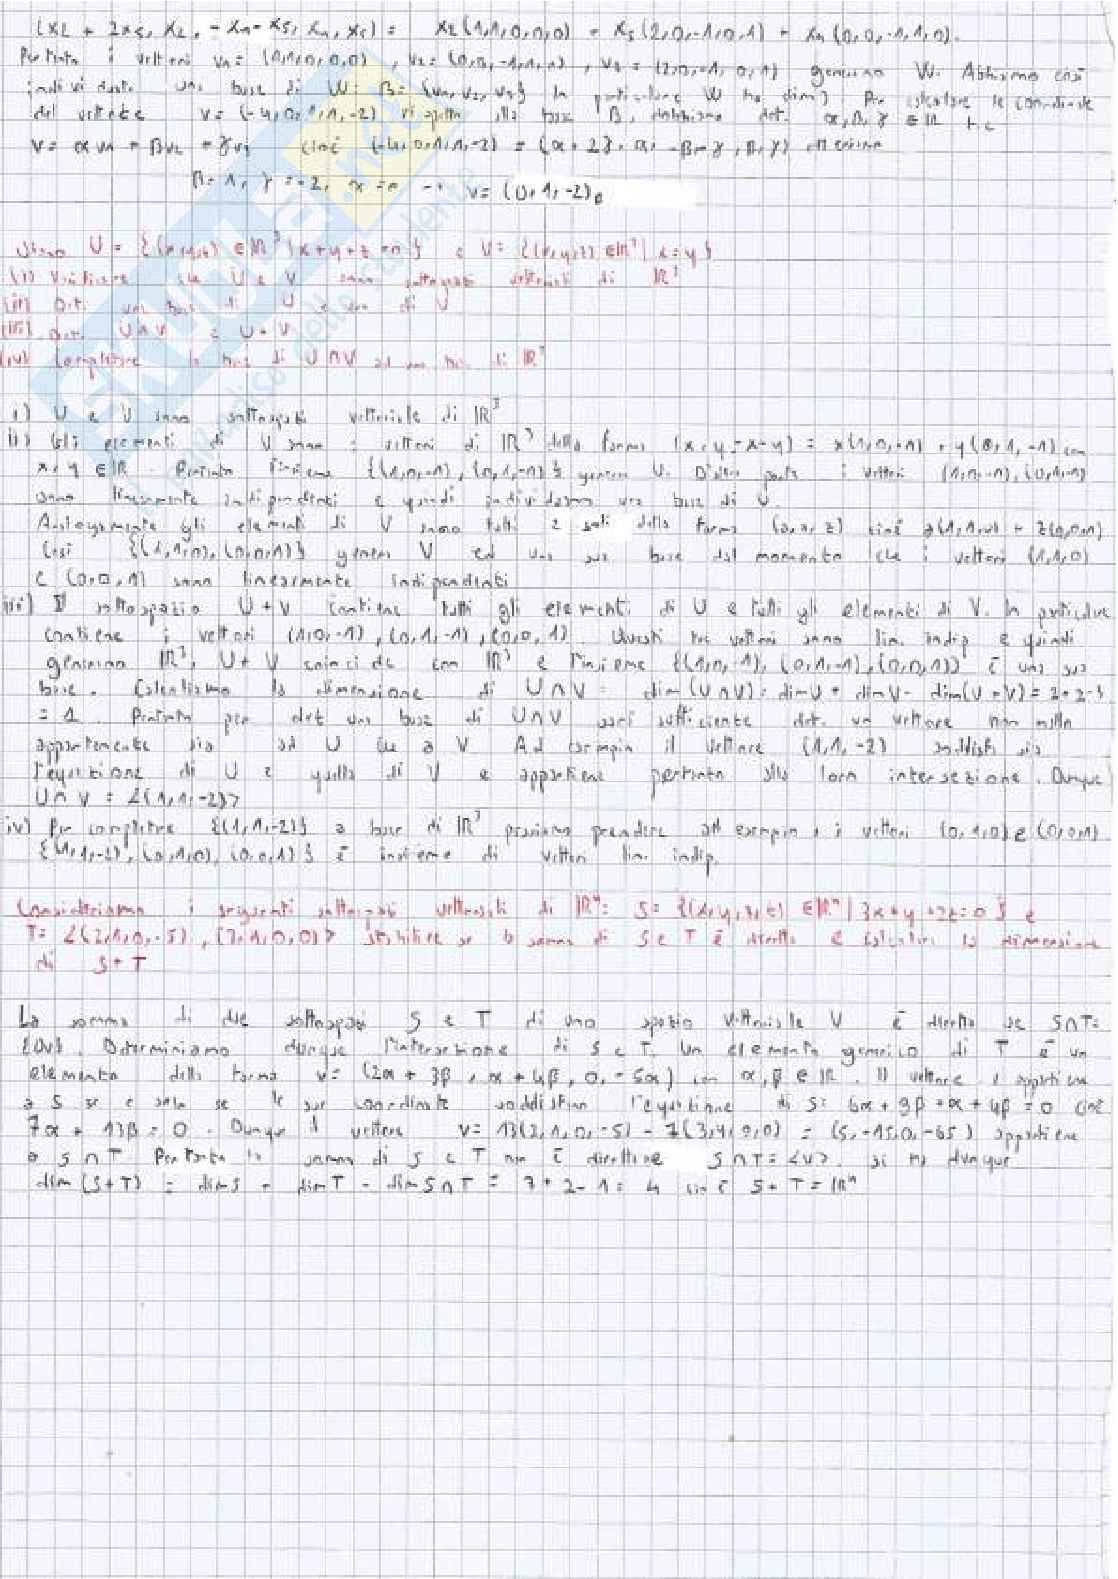 (x2 + 2x5, x2, -x4-x5, x4, x5) = x2(1,1,0,0,0) + x5(2,0,-1,0,1) + x4(0,0,-1,1,0).
Pertanto i vettori v1 = (1,1,0,0,0), v2 = (0,0,-1,1,0), v3 = (2,0,-1,0,1) generano W. Abbiamo così
individuato una base di W: B = {v1, v2, v3} In particolare W ha dim 3. Per calcolare le coordinate
del vettore v = (-4,0,1,1,-2) rispetto alla base B, dobbiamo det. α, β, γ ∈ ℝ t.c
v = αv1 + βv2 + γv3 cioè (-4,0,1,1,-2) = (α+2γ, α, -β-γ, β, γ)
β=1, γ=-2, α=0 → v = (0,1,-2)B
Siano U = {(x,y,z) ∈ ℝ3 | x+y+z=0} e V = {(x,y,z) ∈ ℝ3 | x=y}
(i) Verificare che U e V sono sottospazi vettoriali di ℝ3
(ii) Det. una base di U e una di V
(iii) det. U∩V e U+V
(iv) Completare la base di U∩V ad una base di ℝ3
i) U e V sono sottospazi vettoriale di ℝ3
ii) Gli elementi di U sono i vettori di ℝ3 della forma (x,y,-x-y) = x(1,0,-1) + y(0,1,-1) con
x,y ∈ ℝ. Pertanto l'insieme {(1,0,-1),(0,1,-1)} genera U. D'altra parte i vettori (1,0,-1),(0,1,-1)
sono linearmente indipendenti e quindi individuano una base di U.
Analogamente gli elementi di V sono tutti e soli della forma (a,a,z) cioè a(1,1,0) + z(0,0,1)
Così {(1,1,0),(0,0,1)} genera V ed una sua base dal momento che i vettori (1,1,0)
e (0,0,1) sono linearmente indipendenti
iii) Il sottospazio U+V contiene tutti gli elementi di U e tutti gli elementi di V. In particolare
contiene i vettori (1,0,-1),(0,1,-1),(0,0,1). Questi tre vettori sono lin. indip e quindi
generano ℝ3. U+V coincide con ℝ3 e l'insieme {(1,0,-1),(0,1,-1),(0,0,1)} è una sua
base. Calcoliamo la dimensione di U∩V: dim(U∩V) = dimU + dimV - dim(U+V) = 2+2-3
= 1. Pertanto per det una base di U∩V sarà sufficiente det. un vettore non nullo
appartenente sia ad U che a V. Ad esempio il vettore (1,1,-2) soddisfa sia
l'equazione di U e quella di V e appartiene pertanto alla loro intersezione. Dunque
U∩V = <(1,1,-2)>
iv) Per completare {(1,1,-2)} a base di ℝ3 possiamo prendere ad esempio i vettori (0,1,0) e (0,0,1)
{(1,1,-2),(0,1,0),(0,0,1)} è insieme di vettori lin. indip.
Consideriamo i seguenti sottospazi vettoriali di ℝ4: S = {(x,y,z,t) ∈ ℝ4 | 3x+y+2z=0} e
T = <(2,1,0,-5),(3,4,0,0)> Stabilire se la somma di S e T è diretta e calcolare la dimensione
di S+T
La somma di due sottospazi S e T di uno spazio vettoriale V è diretta se S∩T =
{0v}. Determiniamo dunque l'intersezione di S e T. Un elemento generico di T è un
elemento della forma v = (2α+3β, α+4β, 0, -5α) con α,β ∈ ℝ. Il vettore v appartiene
a S se e solo se le sue coordinate soddisfano l'equazione di S: 6α+9β+α+4β=0 cioè
7α+13β=0. Dunque il vettore v = 13(2,1,0,-5) - 7(3,4,0,0) = (5,-15,0,-65) appartiene
a S∩T. Pertanto la somma di S e T non è diretta e S∩T = <v>. si ha dunque
dim(S+T) = dimS + dimT - dimS∩T = 3+2-1 = 4 cioè S+T = ℝ4